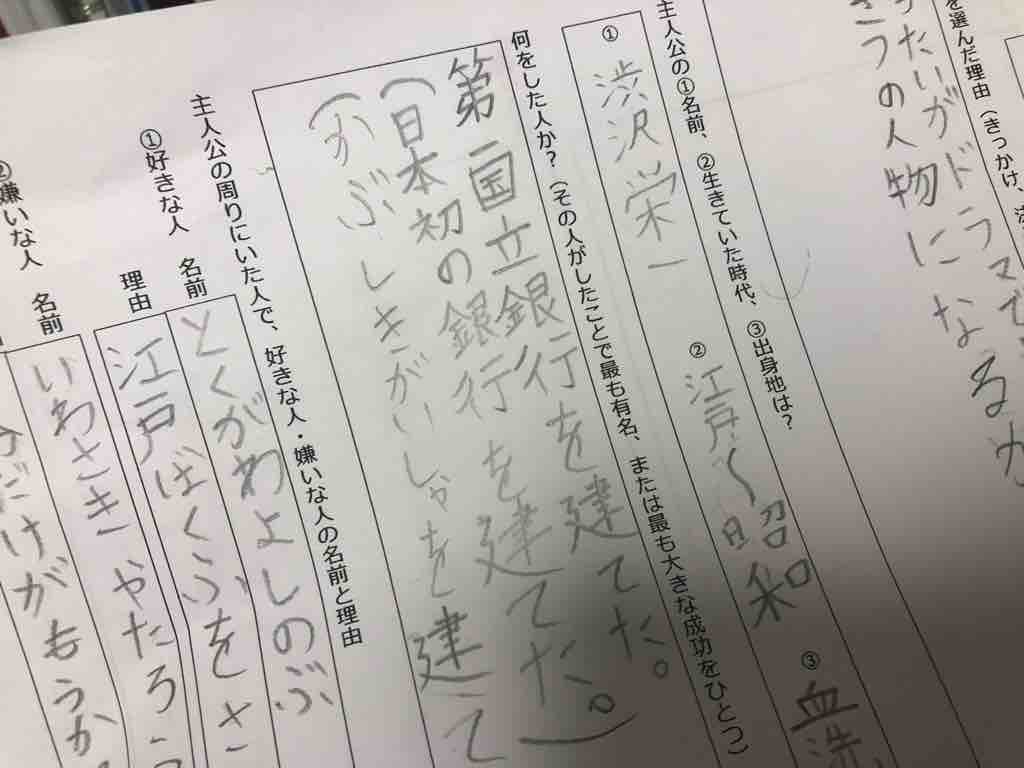 を選んだ理由（きっかけ、
たいがドラマで
きつの人物になるか
主人公の①名前、②生きていた時代、③出身地は？
① 渋沢栄一 ② 江戸〜昭和 ③ 血洗
何をした人か？（その人がしたことで最も有名、または最も大きな成功をひとつ）
第一国立銀行を建てた。
（日本初の銀行を建てた。）
（かぶしきがいしゃを建て
主人公の周りにいた人で、好きな人・嫌いな人の名前と理由
①好きな人 名前 とくがわよしのぶ
理由 江戸ばくふをさ
②嫌いな人 名前 いわさきやたろー
だけがもうか